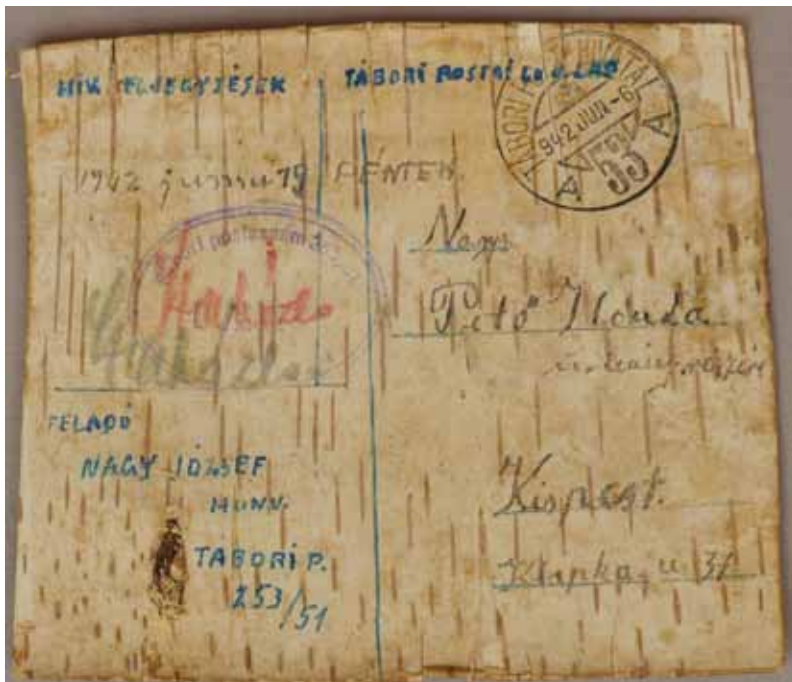 HIV. FELJEGYZÉSEK
TÁBORI POSTAI LEV. LAP
TÁBORI HIVATAL
942 JUN -6
A 55 A
1942 juniu 19 PÉNTEK.
Nagys.
Pető Ilonka
úrleány részére
Kispest.
Klapka u 31
FELADÓ
NAGY JÓZSEF
HONV.
TÁBORI P.
253/51